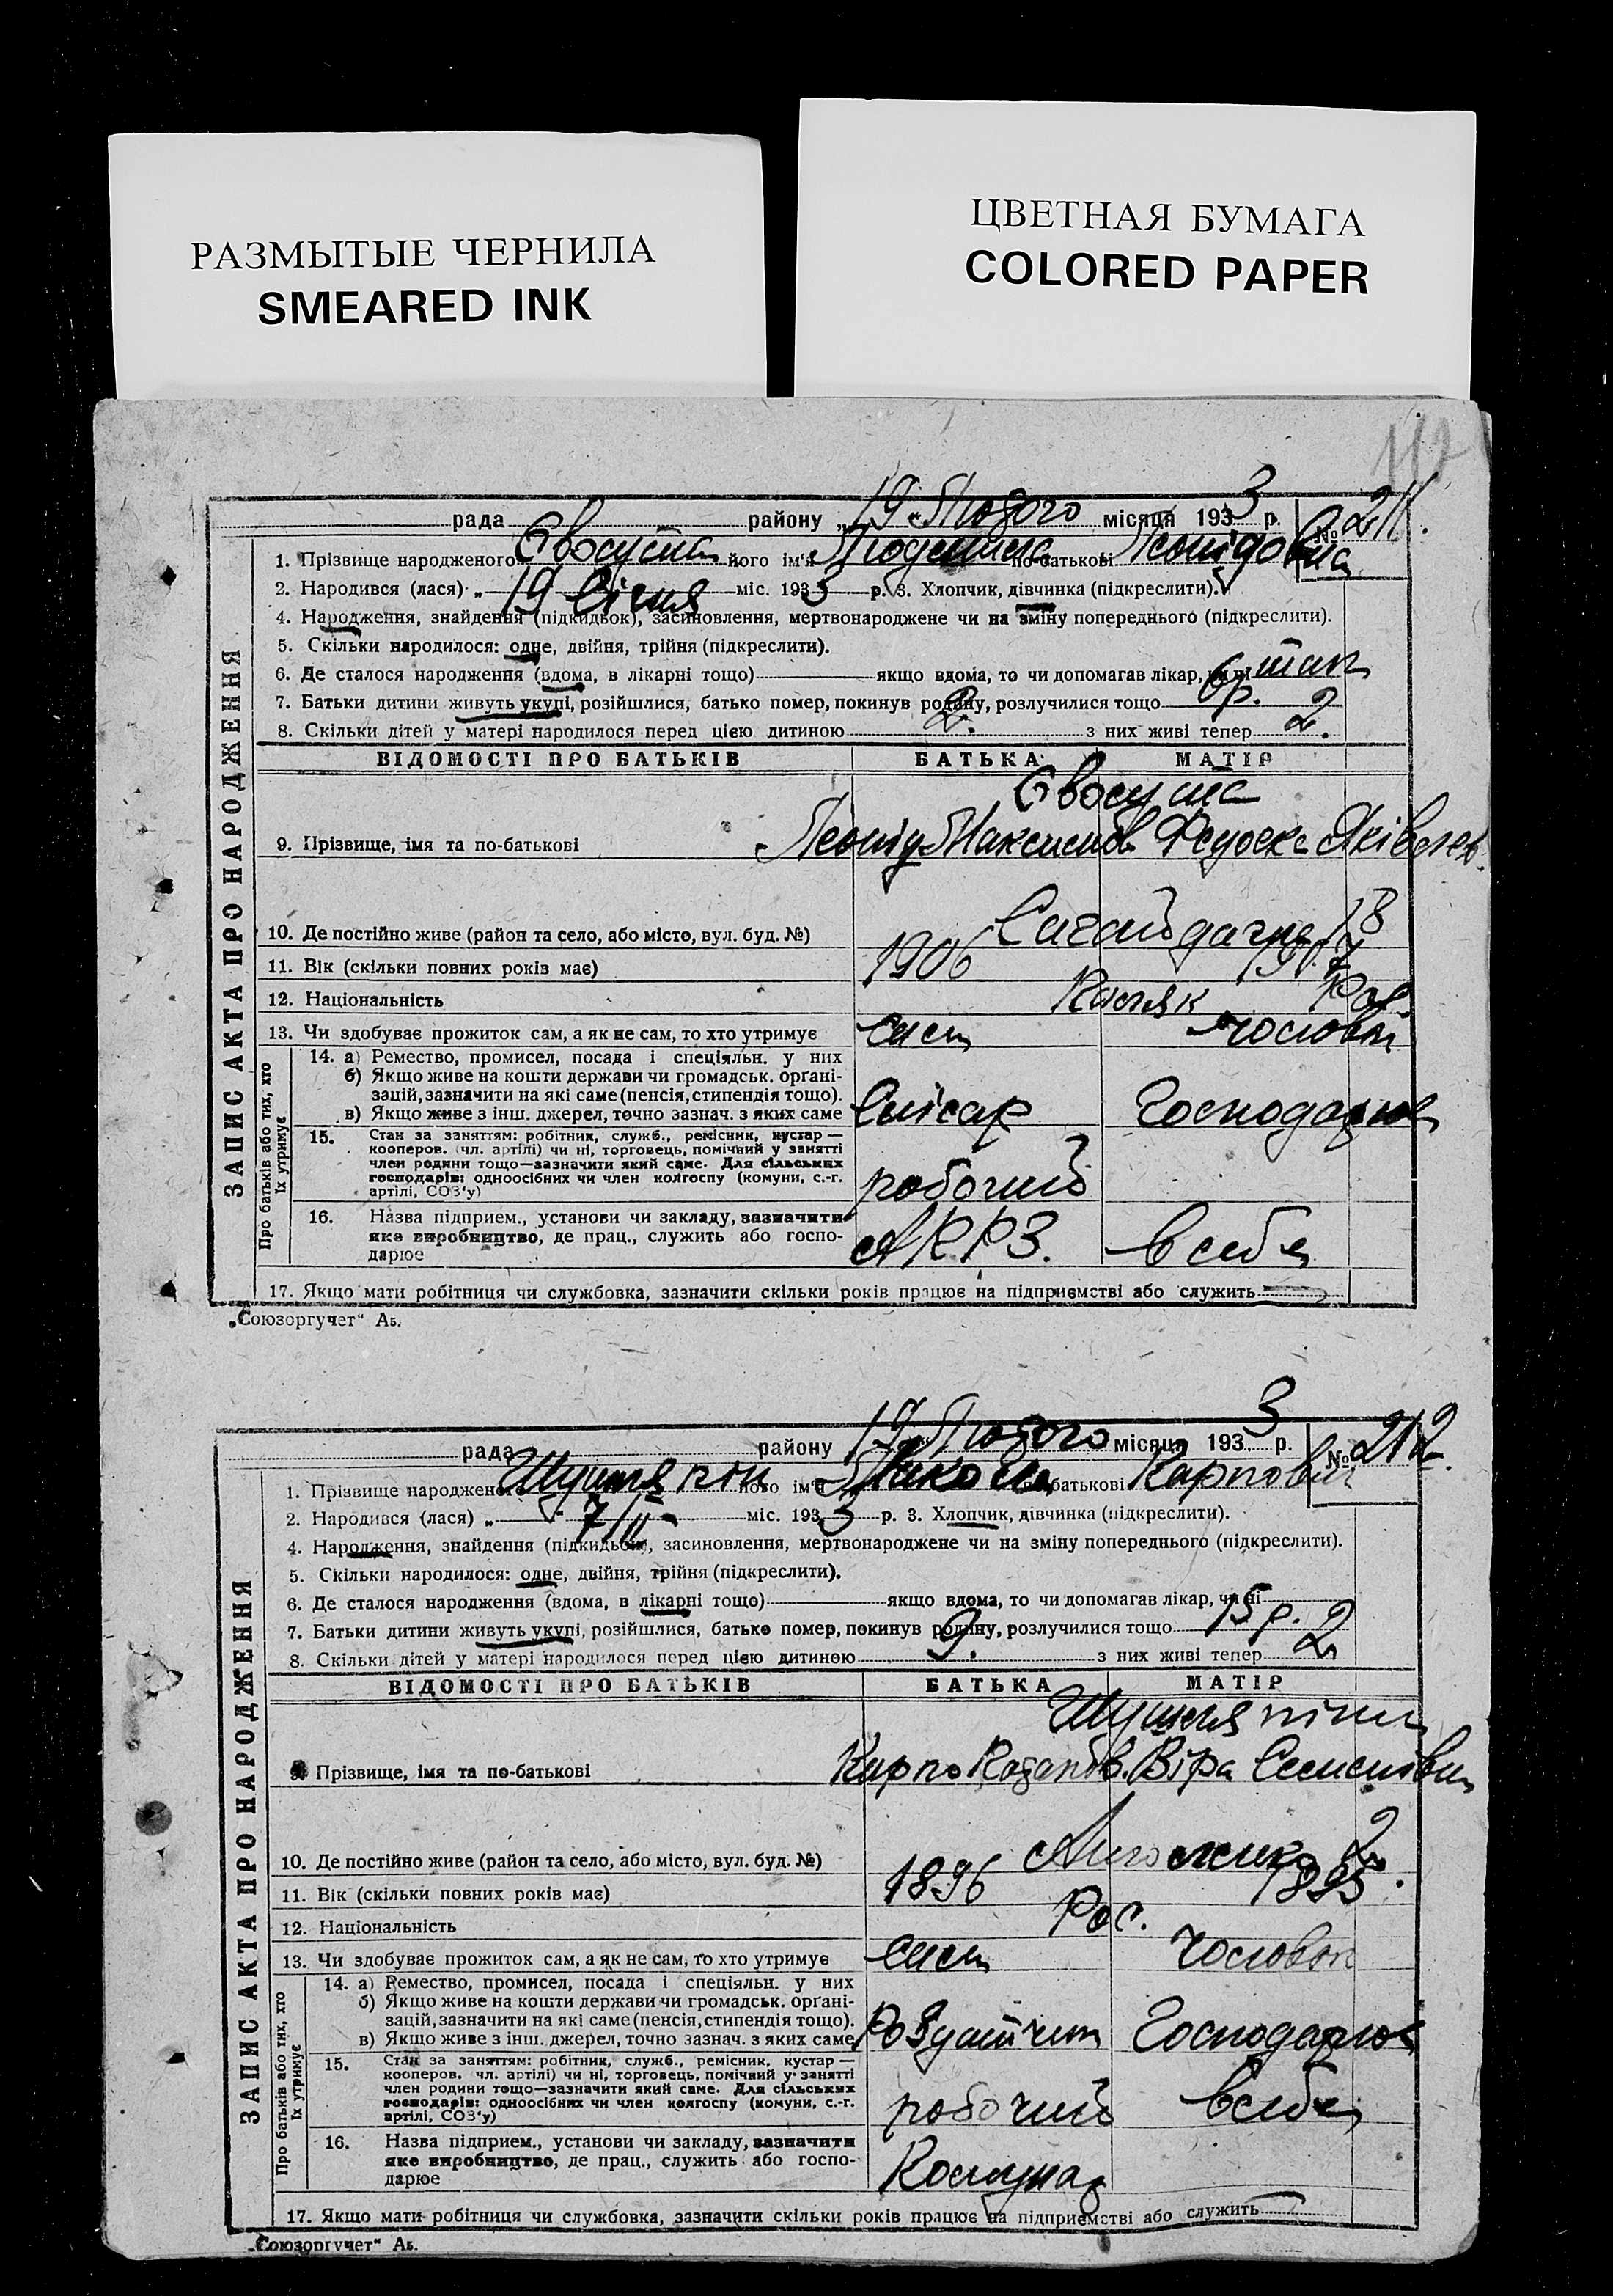 РАЗМЫТЫЕ ЧЕРНИЛА
SMEARED INK
ЦВЕТНАЯ БУМАГА
COLORED PAPER
рада району „19“ Лютого місяця 1933 р. № 211.
1. Прізвище народженого його ім'я Людмила по-батькові Леонідовна
2. Народився (лася) „19 Січня міс. 1933 р. 3. Хлопчик, дівчинка (підкреслити).
4. Народження, знайдення (підкидьок), засиновлення, мертвонароджене чи на зміну попереднього (підкреслити).
5. Скільки народилося: одне, двійня, трійня (підкреслити).
6. Де сталося народження (вдома, в лікарні тощо) якщо вдома, то чи допомагав лікар, чи ні так
7. Батьки дитини живуть укупі, розійшлися, батько помер, покинув родину, розлучилися тощо 6 р.
8. Скільки дітей у матері народилося перед цією дитиною 2. з них живі тепер 2.
ВІДОМОСТІ ПРО БАТЬКІВ БАТЬКА МАТІР
9. Прізвище, імя та по-батькові Леонід Максимов. Федоска Яківлев.
10. Де постійно живе (район та село, або місто, вул. буд. №) 18
11. Вік (скільки повних років має) 1906 1907
12. Національність Рос.
13. Чи здобуває прожиток сам, а як не сам, то хто утримує сам чоловік
14. а) Ремество, промисел, посада і спеціяльн. у них
б) Якщо живе на кошти держави чи громадськ. органі-
зацій, зазначити на які саме (пенсія, стипендія тощо).
в) Якщо живе з інш. джерел, точно зазнач. з яких саме
Слісар Господарює
15. Стан за заняттям: робітник, служб., ремісник, кустар —
кооперов. (чл. артілі) чи ні, торговець, помічний у занятті
член родини тощо—зазначити який саме. Для сільських
господарів: одноосібних чи член колгоспу (комуни, с.-г.
артілі, СОЗ'у)
робочий
16. Назва підприєм., установи чи закладу, зазначити
яке виробництво, де прац., служить або госпо-
дарює
АРРЗ. в себе
17. Якщо мати робітниця чи службовка, зазначити скільки років працює на підприємстві або служить
ЗАПИС АКТА ПРО НАРОДЖЕННЯ
Про батьків або тих, хто
їх утримує
„Союзоргучет“ Аб.
рада району 19 Лютого місяця 1933 р. № 212.
1. Прізвище народженого його ім'я Микола по-батькові Карпович
2. Народився (лася) „ 7/II міс. 1933 р. 3. Хлопчик, дівчинка (підкреслити).
4. Народження, знайдення (підкидьок), засиновлення, мертвонароджене чи на зміну попереднього (підкреслити).
5. Скільки народилося: одне, двійня, трійня (підкреслити).
6. Де сталося народження (вдома, в лікарні тощо) якщо вдома, то чи допомагав лікар, чи ні
7. Батьки дитини живуть укупі, розійшлися, батько помер, покинув родину, розлучилися тощо 15 р.
8. Скільки дітей у матері народилося перед цією дитиною 9. з них живі тепер 2
ВІДОМОСТІ ПРО БАТЬКІВ БАТЬКА МАТІР
9. Прізвище, імя та по-батькові Карпо Віра Семенівна
10. Де постійно живе (район та село, або місто, вул. буд. №) 2
11. Вік (скільки повних років має) 1896 1895.
12. Національність Рос.
13. Чи здобуває прожиток сам, а як не сам, то хто утримує сам чоловік
14. а) Ремество, промисел, посада і спеціяльн. у них
б) Якщо живе на кошти держави чи громадськ. органі-
зацій, зазначити на які саме (пенсія, стипендія тощо).
в) Якщо живе з інш. джерел, точно зазнач. з яких саме
Господарює
15. Стан за заняттям: робітник, служб., ремісник, кустар —
кооперов. чл. артілі) чи ні, торговець, помічний у занятті
член родини тощо—зазначити який саме. Для сільських
господарів: одноосібних чи член колгоспу (комуни, с.-г.
артілі, СОЗ'у)
робочий в себе
16. Назва підприєм., установи чи закладу, зазначити
яке виробництво, де прац., служить або госпо-
дарює
17. Якщо мати робітниця чи службовка, зазначити скільки років працює на підприємстві або служить
ЗАПИС АКТА ПРО НАРОДЖЕННЯ
Про батьків або тих, хто
їх утримує
„Союзоргучет“ Аб.